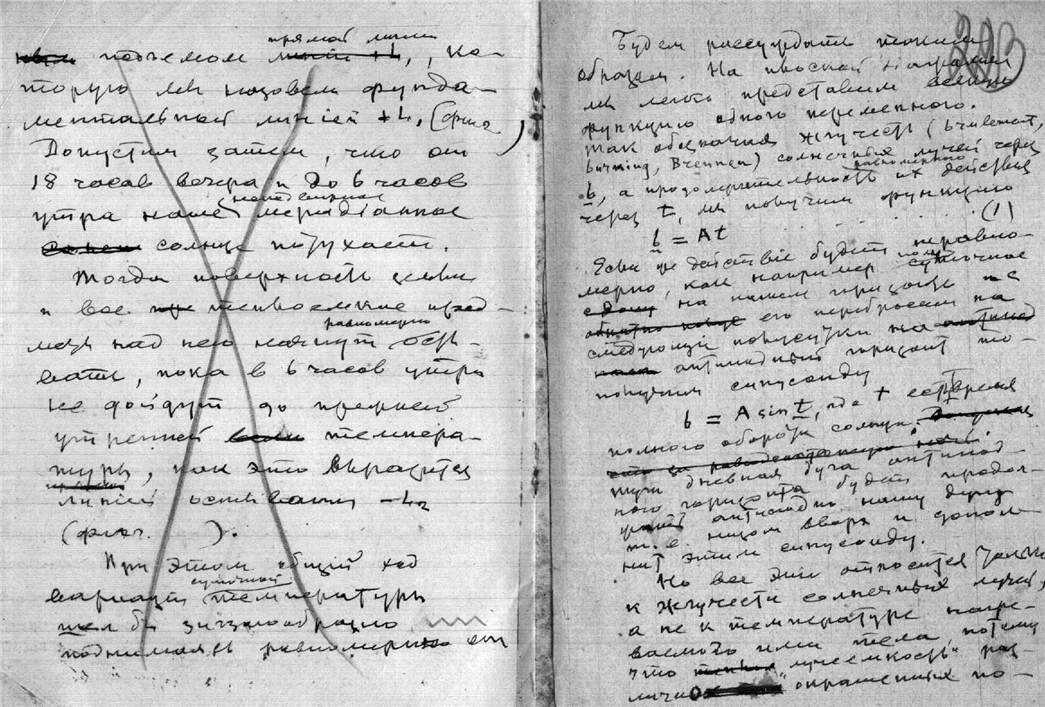 подъемом прямой линии, ко-
торую мы назовем фунда-
ментальной линией +L, (фиг )
Допустим затем, что от
18 часов вечера и до 6 часов
утра наше меридианное
солнце потухает.
Тогда поверхность земли
и все предме-
ты над нею начнут равномерно осты-
вать, пока в 6 часов утра
не дойдут до прежней
утренней темпера-
туры, как это выразится
линией остывания -L₂
(фиг. ).
При этом общий ход
вариации суточной температуры
шел бы зигзагообразно
поднимаясь равномерно от
203
Будем рассуждать таким
образом. На плоской диаграмме
мы легко представим всякую
функцию одного переменного.
Так обозначая жгучесть (brulement,
burning, Brennen) солнечных лучей через
b, а продолжительность их равномерного действия
через t, мы получим функцию
b = At (1)
Если же действие будет неравно-
мерно, как например суточное
на нашем горизонте
его перебросим на
следующие полусутки на
антиподный горизонт то
получим синусоиду
b = A sin t, где t есть время
полного оборота солнца,
дневная дуга антипод-
ного горизонта будет продол-
антиподно нашу дугу
т. е. низом вверх и допол-
нит этим синусоиду.
Но все это относится только
к жгучести солнечных лучей,
а не к температуре нагре-
ваемого ими тела, потому
что „лучеемкость" раз-
лично окрашенных по-